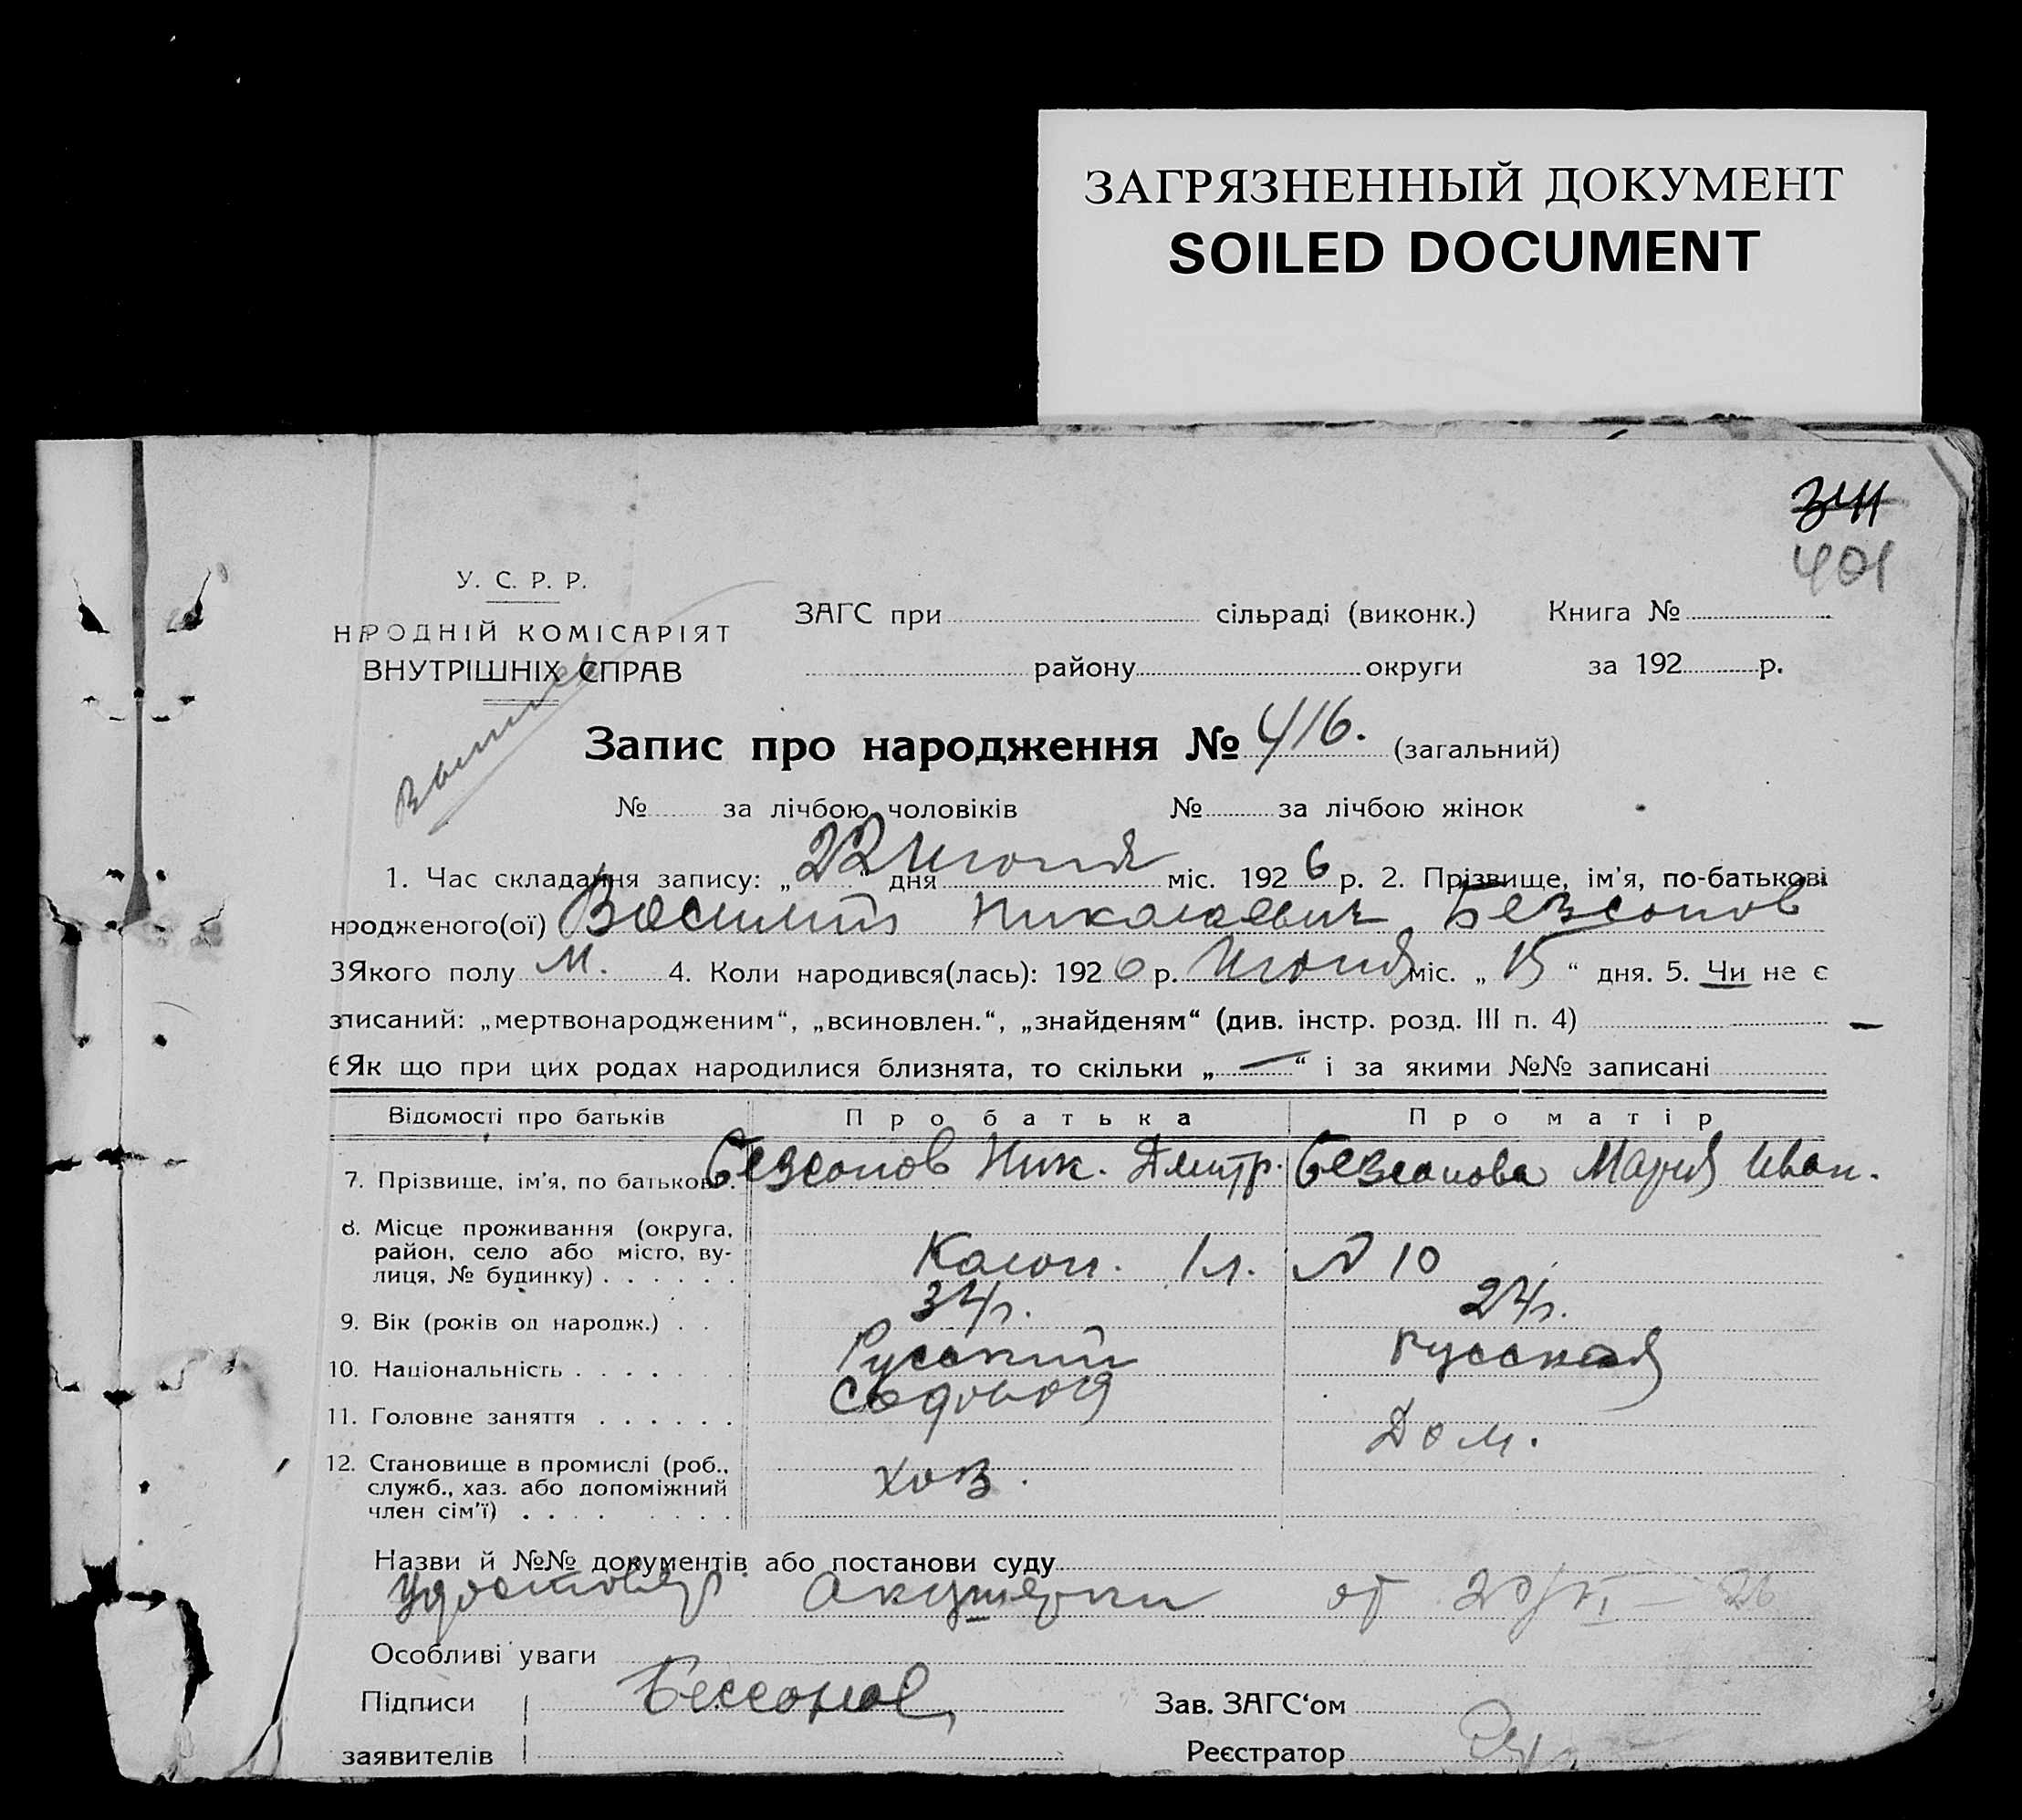 ЗАГРЯЗНЕННЫЙ ДОКУМЕНТ
SOILED DOCUMENT
341
401
У. С. Р. Р.
НРОДНІЙ КОМІСАРІЯТ
ВНУТРІШНІХ СПРАВ
ЗАГС при сільраді (виконк.) Книга №
району округи за 192 р.
Запис про народження № 416. (загальний)
№ за лічбою чоловіків № за лічбою жінок
1. Час складання запису: „22 дня Июня міс. 1926 р. 2. Прізвище, ім'я, по-батькові
нродженого(ої) Василий Николаевич Безсонов
3 Якого полу м. 4. Коли народився(лась): 1926 р. Июня міс. „15“ дня. 5. Чи не є
зписаний: „мертвонародженим“, „всиновлен.“, „знайденям“ (див. інстр. розд. III п. 4) —
6 Як що при цих родах народилися близнята, то скільки „—“ і за якими №№ записані
Відомості про батьків Про батька Про матір
7. Прізвище, ім'я, по батькові. Безсонов Ник. Дмитр. Безсонова Мария Иван.
8. Місце проживання (округа,
район, село або місто, ву-
лиця, № будинку) . . . . . . Колон. 1 л. № 10
9. Вік (років од народж.) . . 34 г. 24 г.
10. Національність . . . . . . . Русский Русская
11. Головне заняття . . . . . . Дом.
12. Становище в промислі (роб.,
служб., хаз. або допоміжний
член сім'ї) . . . . . . . . хоз.
Назви й №№ документів або постанови суду
Удостовер. Акушерки от 20/VI – 26
Особливі уваги
Підписи Бессонов Зав. ЗАГС‘ом
заявителів Реєстратор